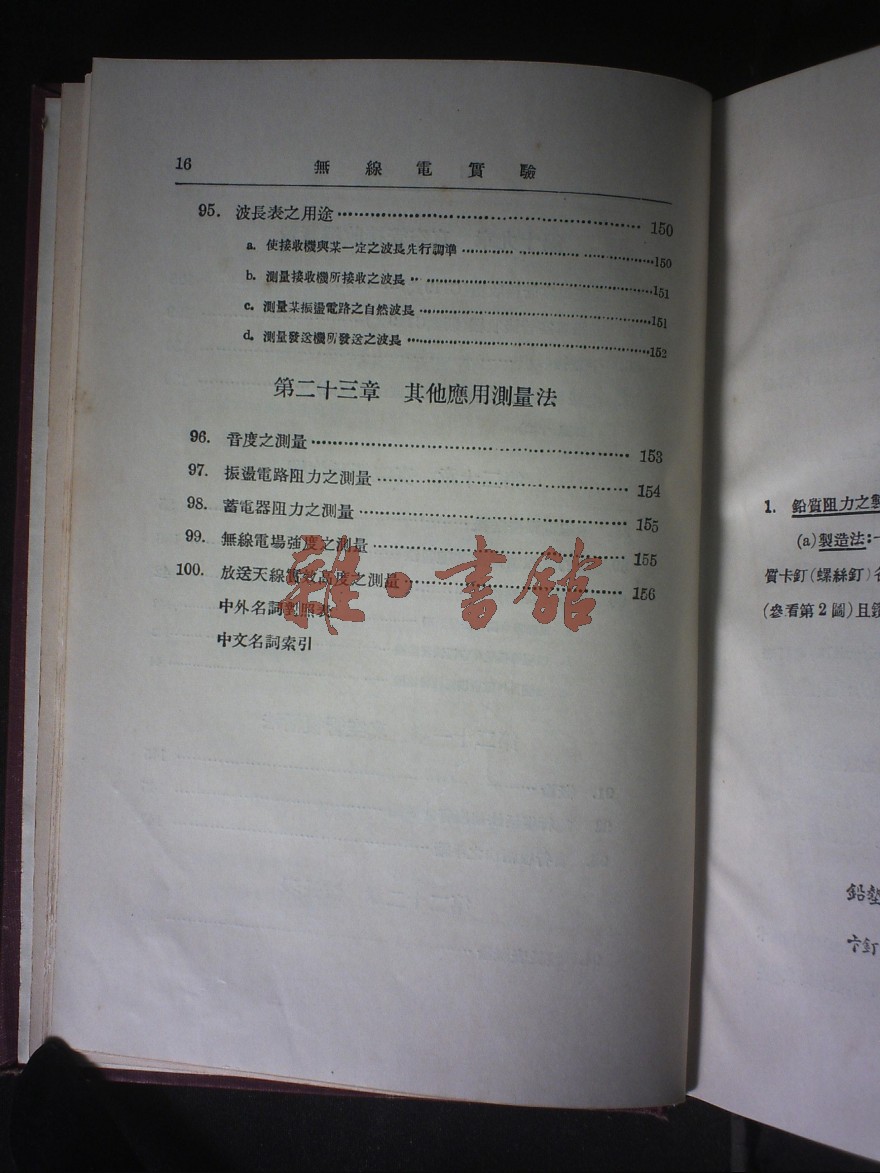 16 無線電實驗
95. 波長表之用途 150
a. 使接收機與某一定之波長先行調準 150
b. 測量接收機所接收之波長 151
c. 測量某振盪電路之自然波長 151
d. 測量發送機所發送之波長 152
第二十三章 其他應用測量法
96. 音度之測量 153
97. 振盪電路阻力之測量 154
98. 蓄電器阻力之測量 155
99. 無線電場強度之測量 155
100. 放送天線實效高度之測量 156
中外名詞對照表
中文名詞索引
雜·書館
1. 鉛質阻力之製
(a) 製造法:
質卡釘(螺絲釘)各
(參看第2圖)且鑽
鉛墊
卡釘